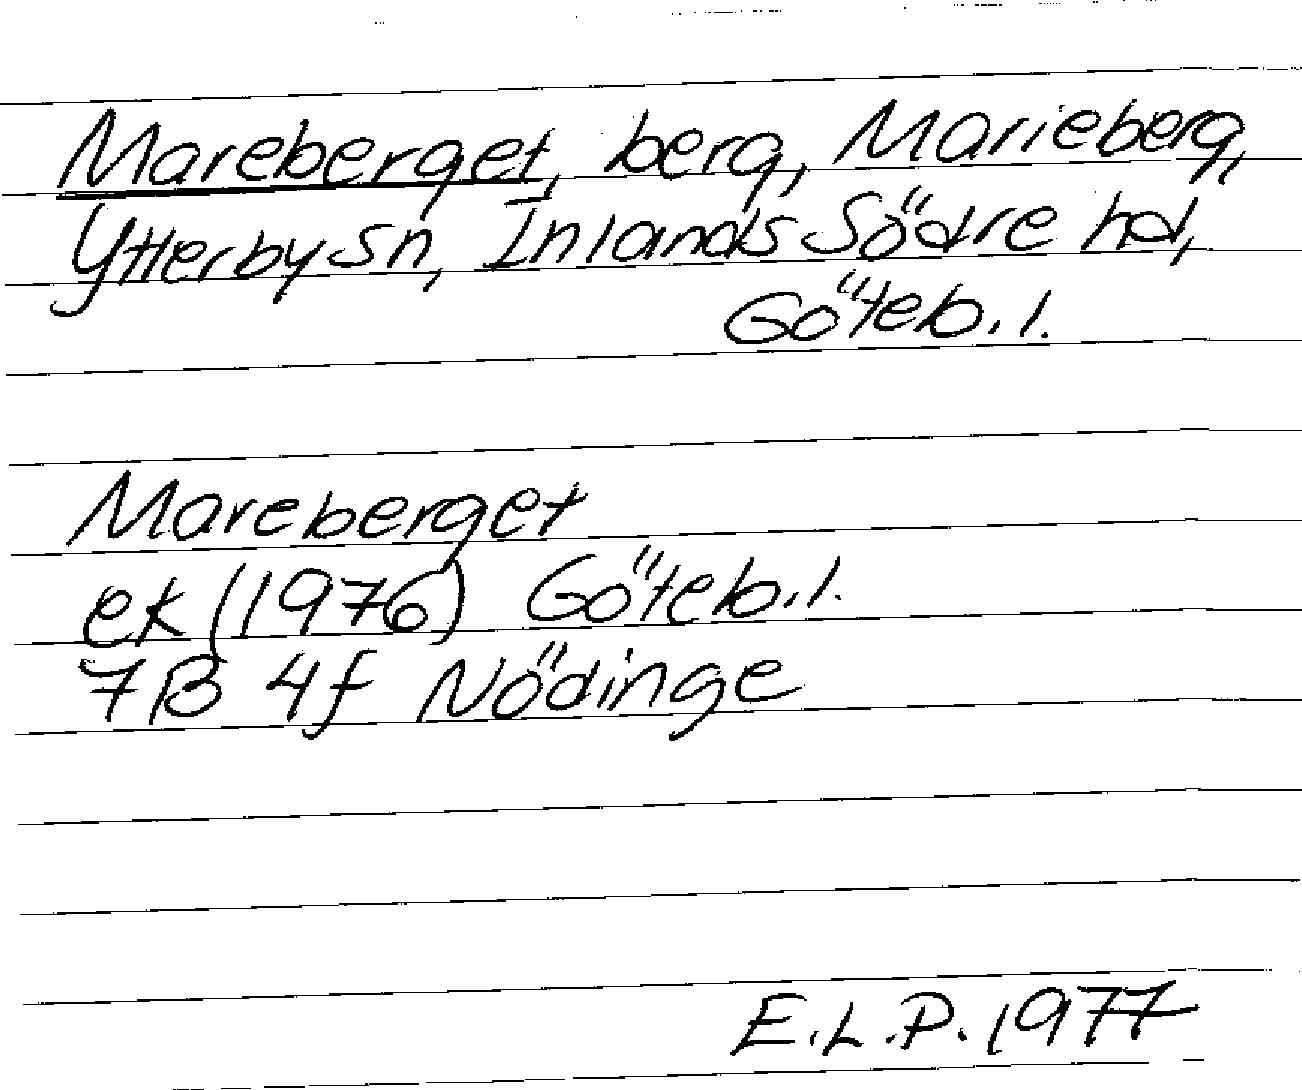 Mareberget, berg, Marieberg,
Ytterby sn, Inlands Södre hd,
Göteb. l.
Mareberget
ek (1976) Göteb. l.
7B 4f Nödinge
E.L.P. 1977